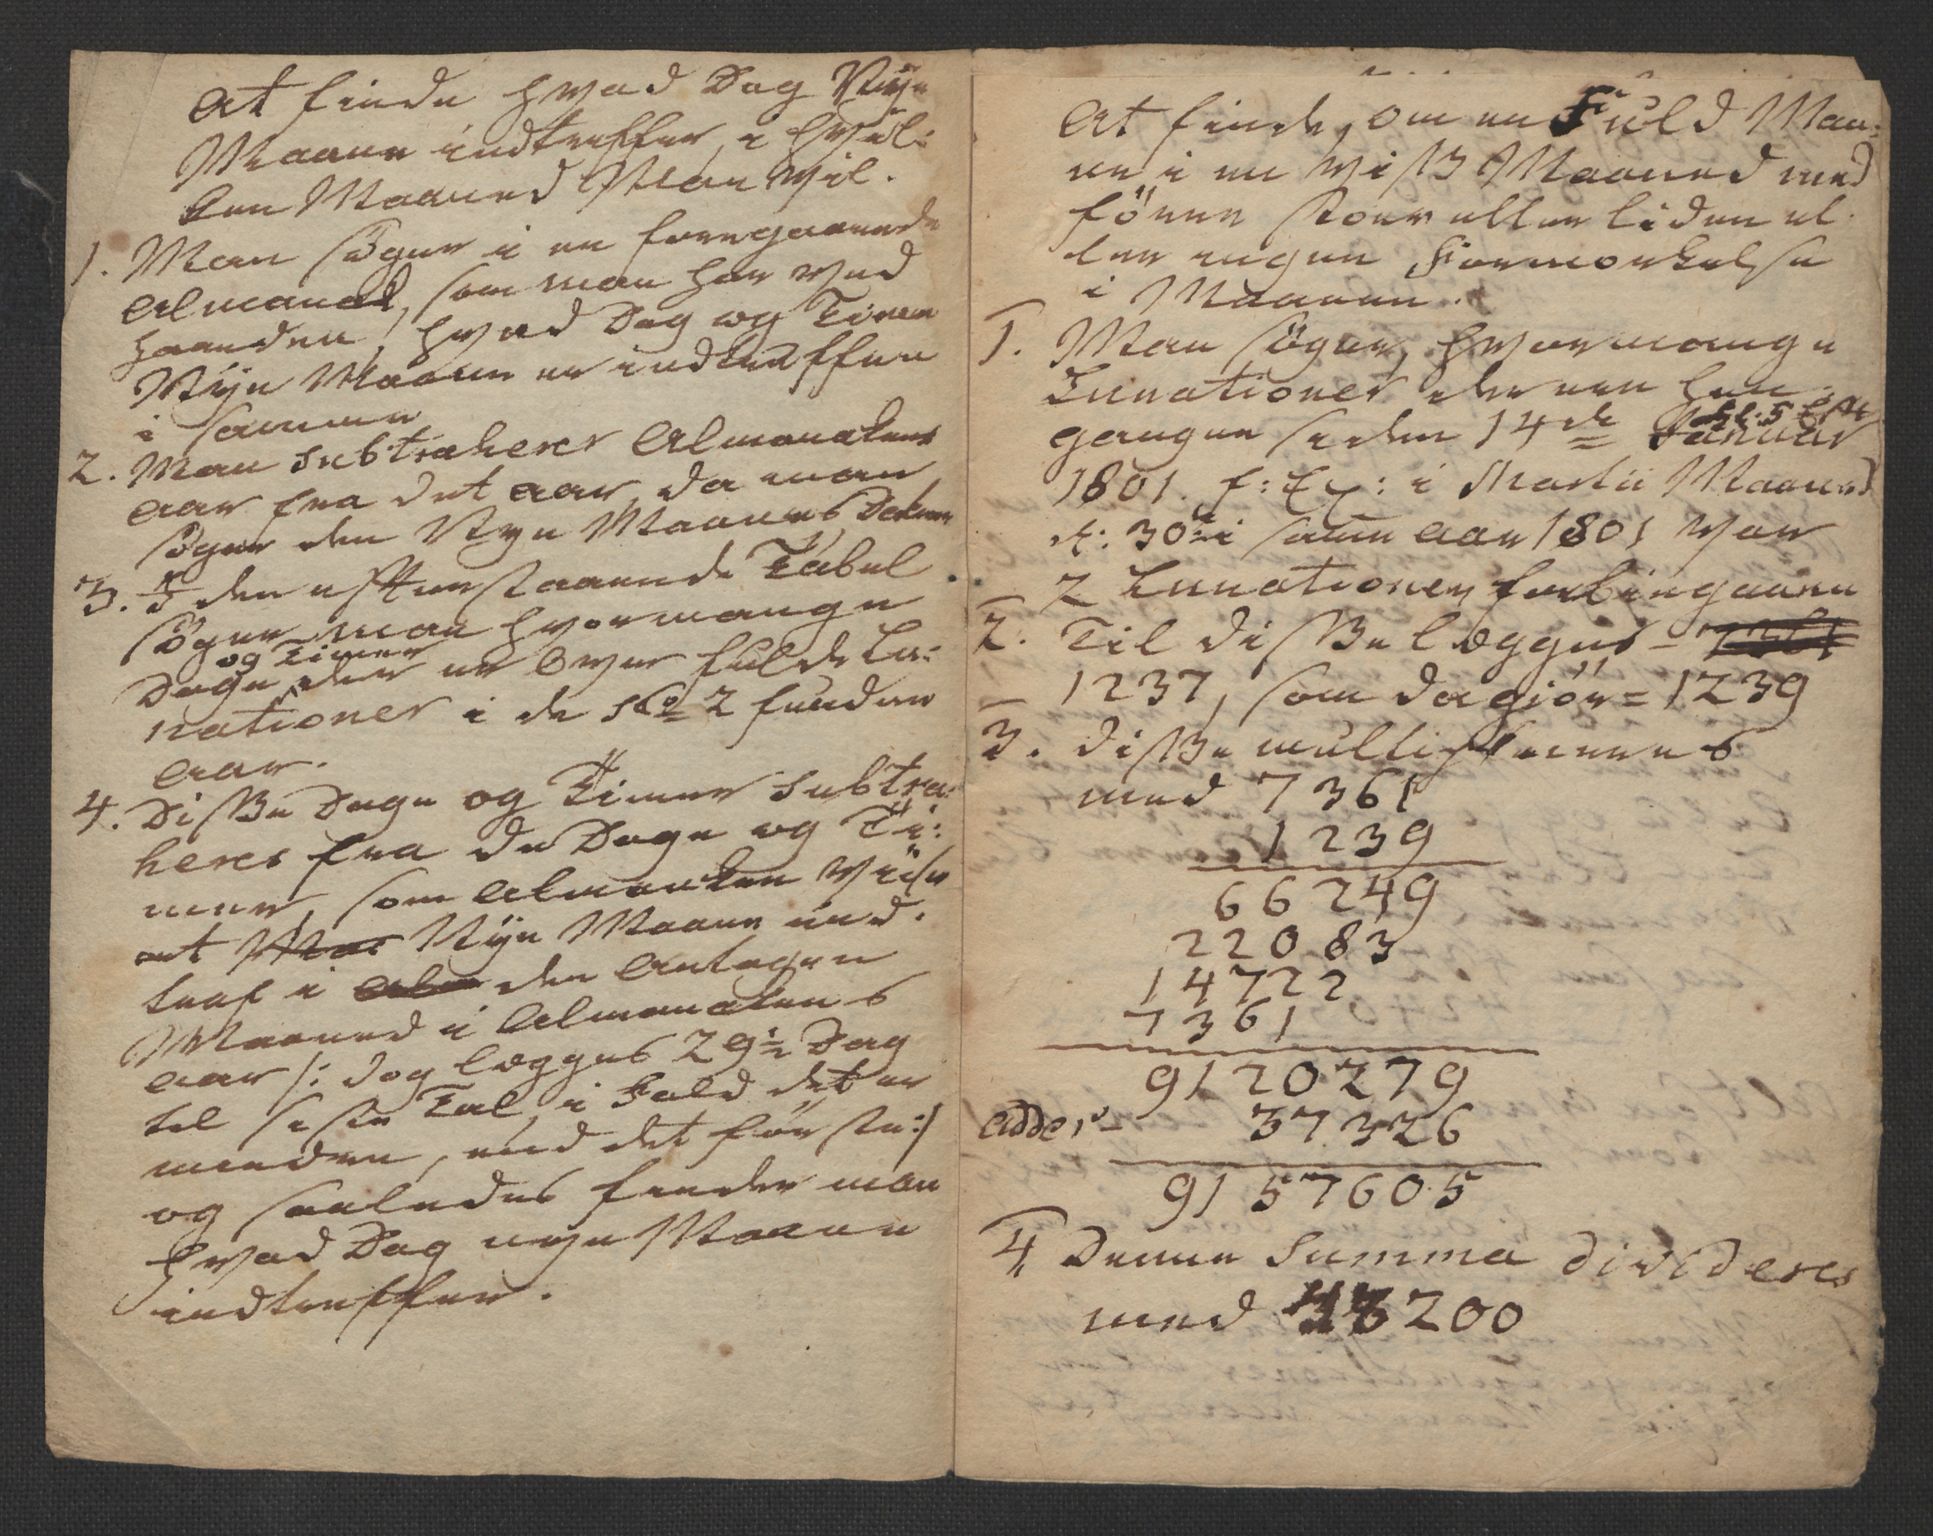 At finde hvad Dag Nye
Maane indtreffer, i hvil:
ken Maaned Man vil.
1. Man søger i en foregaaende
Almanak, som man har ved
haanden, hvad Dag og Timen
Nye Maane er indtreffen
i samme
2. Man subtraherer Almanakens
Aar fra det Aar, da man
søger den Nye Maanes
3. I den efterstaaende Tabel
søger man hvormange
og Timer
Dage der er over fulde Lu:
nationer i de sub 2 funden
Aar.
4. Disse Dage og Timer subtra:
heres fra de Dage og Ti:
mer, som Almanaken viiser
at Nye Maane ind:
traf i den Antagen
Maaned i Almanakens
Aar /: dog legges 29½ Dag
til siste Tal, i Fald det er
mindre, end det første :/
og saaledes finder man
hvad Dag nye Maane
indtreffer.
At finde, om en Fuld Maa:
ne i en viss Maaned med
fører stoer eller liden el:
ler ingen Formørkelse
i Maanen.
1. Man søger, hvormange
Lunationer der ere hen:
gangne siden 14de Januar
1801. f: Ex: i Martii Maaned
d: 30te i samme Aar 1801 var
2 Lunationer forbigaaen
2. Til disse legges =
1237, som da giör = 1239
3. Disse multipliceres
med 7361
1239
66249
22083
14722
7361
9120279
adder 37326
9157605
4. Denne Summa divideres
med 43200